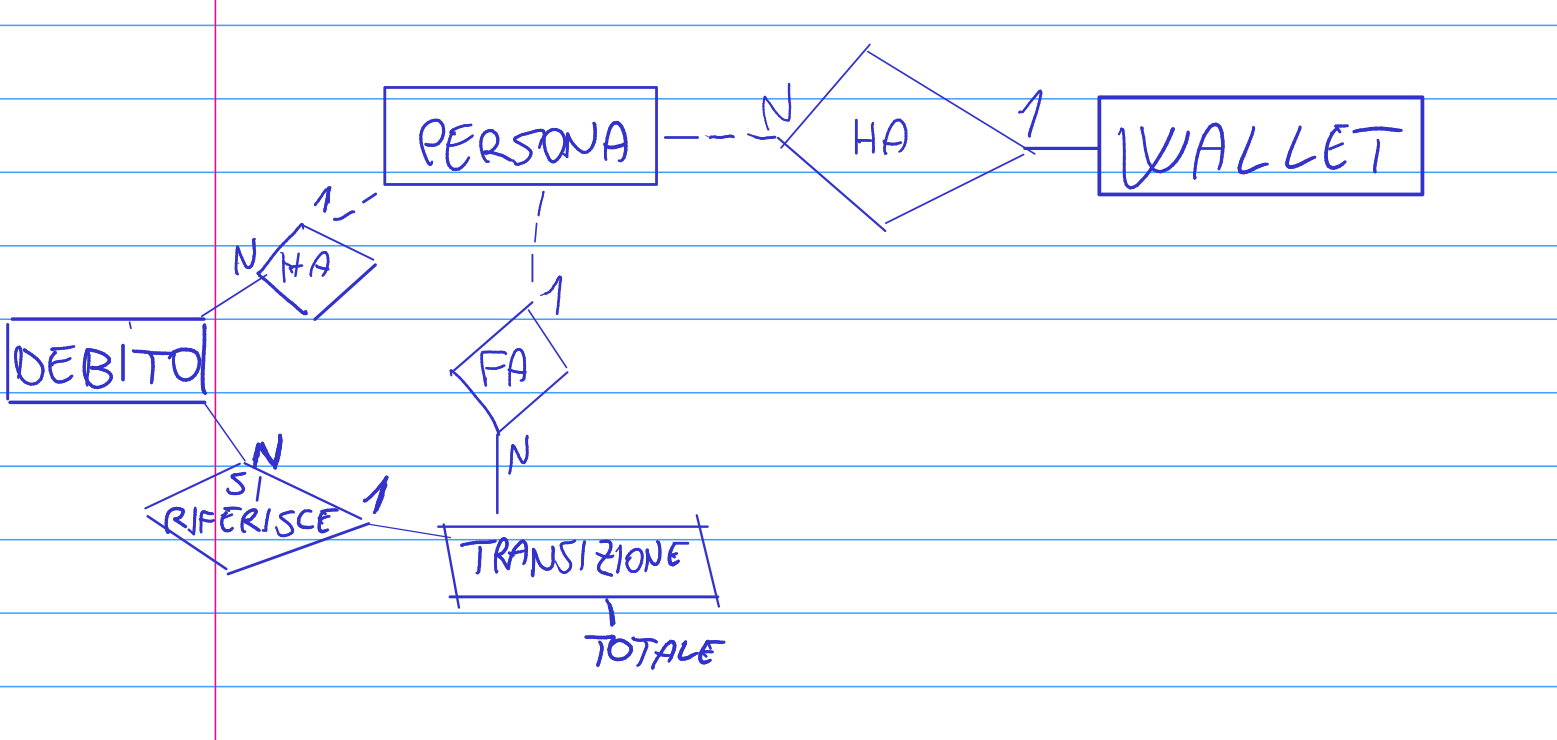 PERSONA
N
HA
1
WALLET
1
N
HA
1
DEBITO
FA
N
N
SI
RIFERISCE
1
TRANSIZIONE
TOTALE